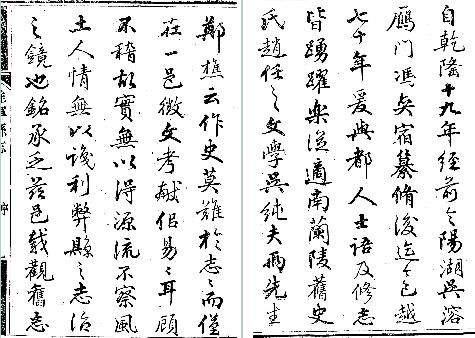 鄭樵云作史莫難於志〻而僅
在一邑徵文考献佀易〻耳顧
不稽故實無以得源流不察風
土人情無以識利弊縣之志治
之鏡也銘承乏茲邑載觀舊志
淮寧縣志
序
自乾隆十九年經前令陽湖吳溶
雁門馮奕宿纂脩後迄今已越
七十年爰與都人士語及修志
皆踴躍樂從適南蘭陵舊史
氏趙任之文學吳純夫兩先生